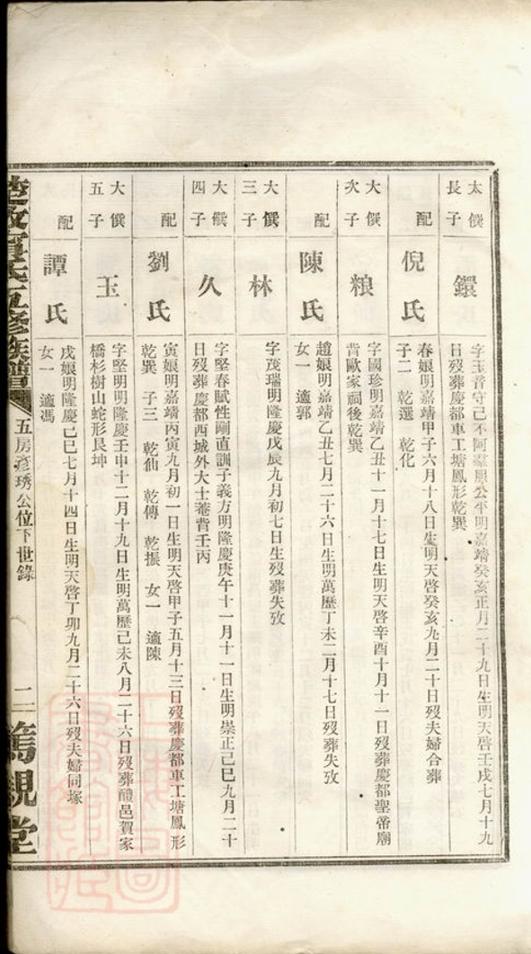 太僎長子
鐶
字玉音守己不阿羣服公平明嘉靖癸亥正月二十九日生明天啓壬戌七月十九
日歿葬慶都車工塘鳳形乾巽
配
倪氏
春娘明嘉靖甲子六月十八日生明天啓癸亥九月二十日歿夫婦合葬
子二 乾選 乾化
大僎次子
粮
字國珍明嘉靖乙丑十一月十七日生明天啓辛酉十月十一日歿葬慶都聖帝廟
背歐家祠後乾巽
配
陳氏
趙娘明嘉靖乙丑七月二十六日生明萬歷丁未二月十七日歿葬失攷
女一 適郭
大僎三子
林
字茂瑞明隆慶戊辰九月初七日生歿葬失攷
大僎四子
久
字堅春賦性剛直訓子義方明隆慶庚午十一月十一日生明崇正己巳九月二十
日歿葬慶都西城外大士菴背壬丙
配
劉氏
寅娘明嘉靖丙寅九月初一日生明天啓甲子五月十三日歿葬慶都車工塘鳳形
乾巽 子三 乾仙 乾傳 乾振 女一 適陳
大僎五子
玉
字堅明明隆慶壬申十二月十九日生明萬歷己未八月二十六日歿葬醴邑賀家
橋杉樹山蛇形艮坤
配
譚氏
戌娘明隆慶己巳七月十四日生明天啓丁卯九月二十六日歿夫婦同塚
女一 適馮
氏五修族譜
五房彥琇公位下世錄
二
篤親堂